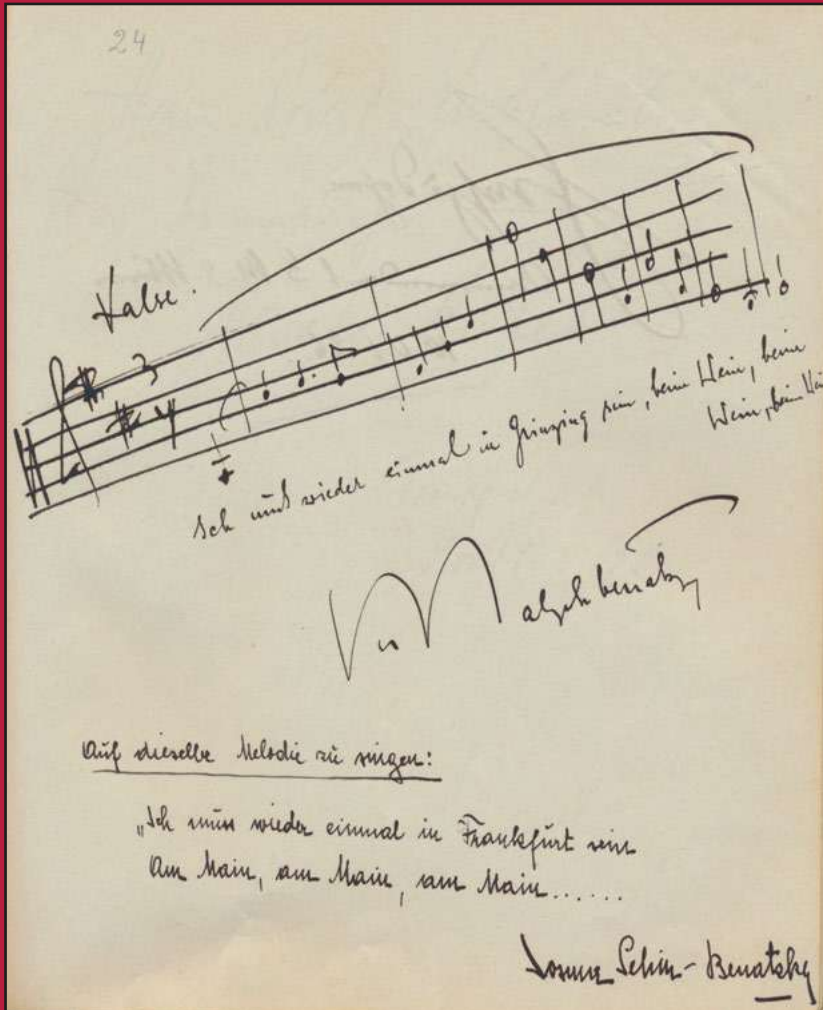 24
Valse.
3
4
Ich muß wieder einmal in Grinzing sein, beim Wein, beim
Wein, beim Wein
Ralph Benatzky
Auf dieselbe Melodie zu singen:
„Ich muss wieder einmal in Frankfurt sein
Am Main, am Main, am Main......
Selim-Benatzky